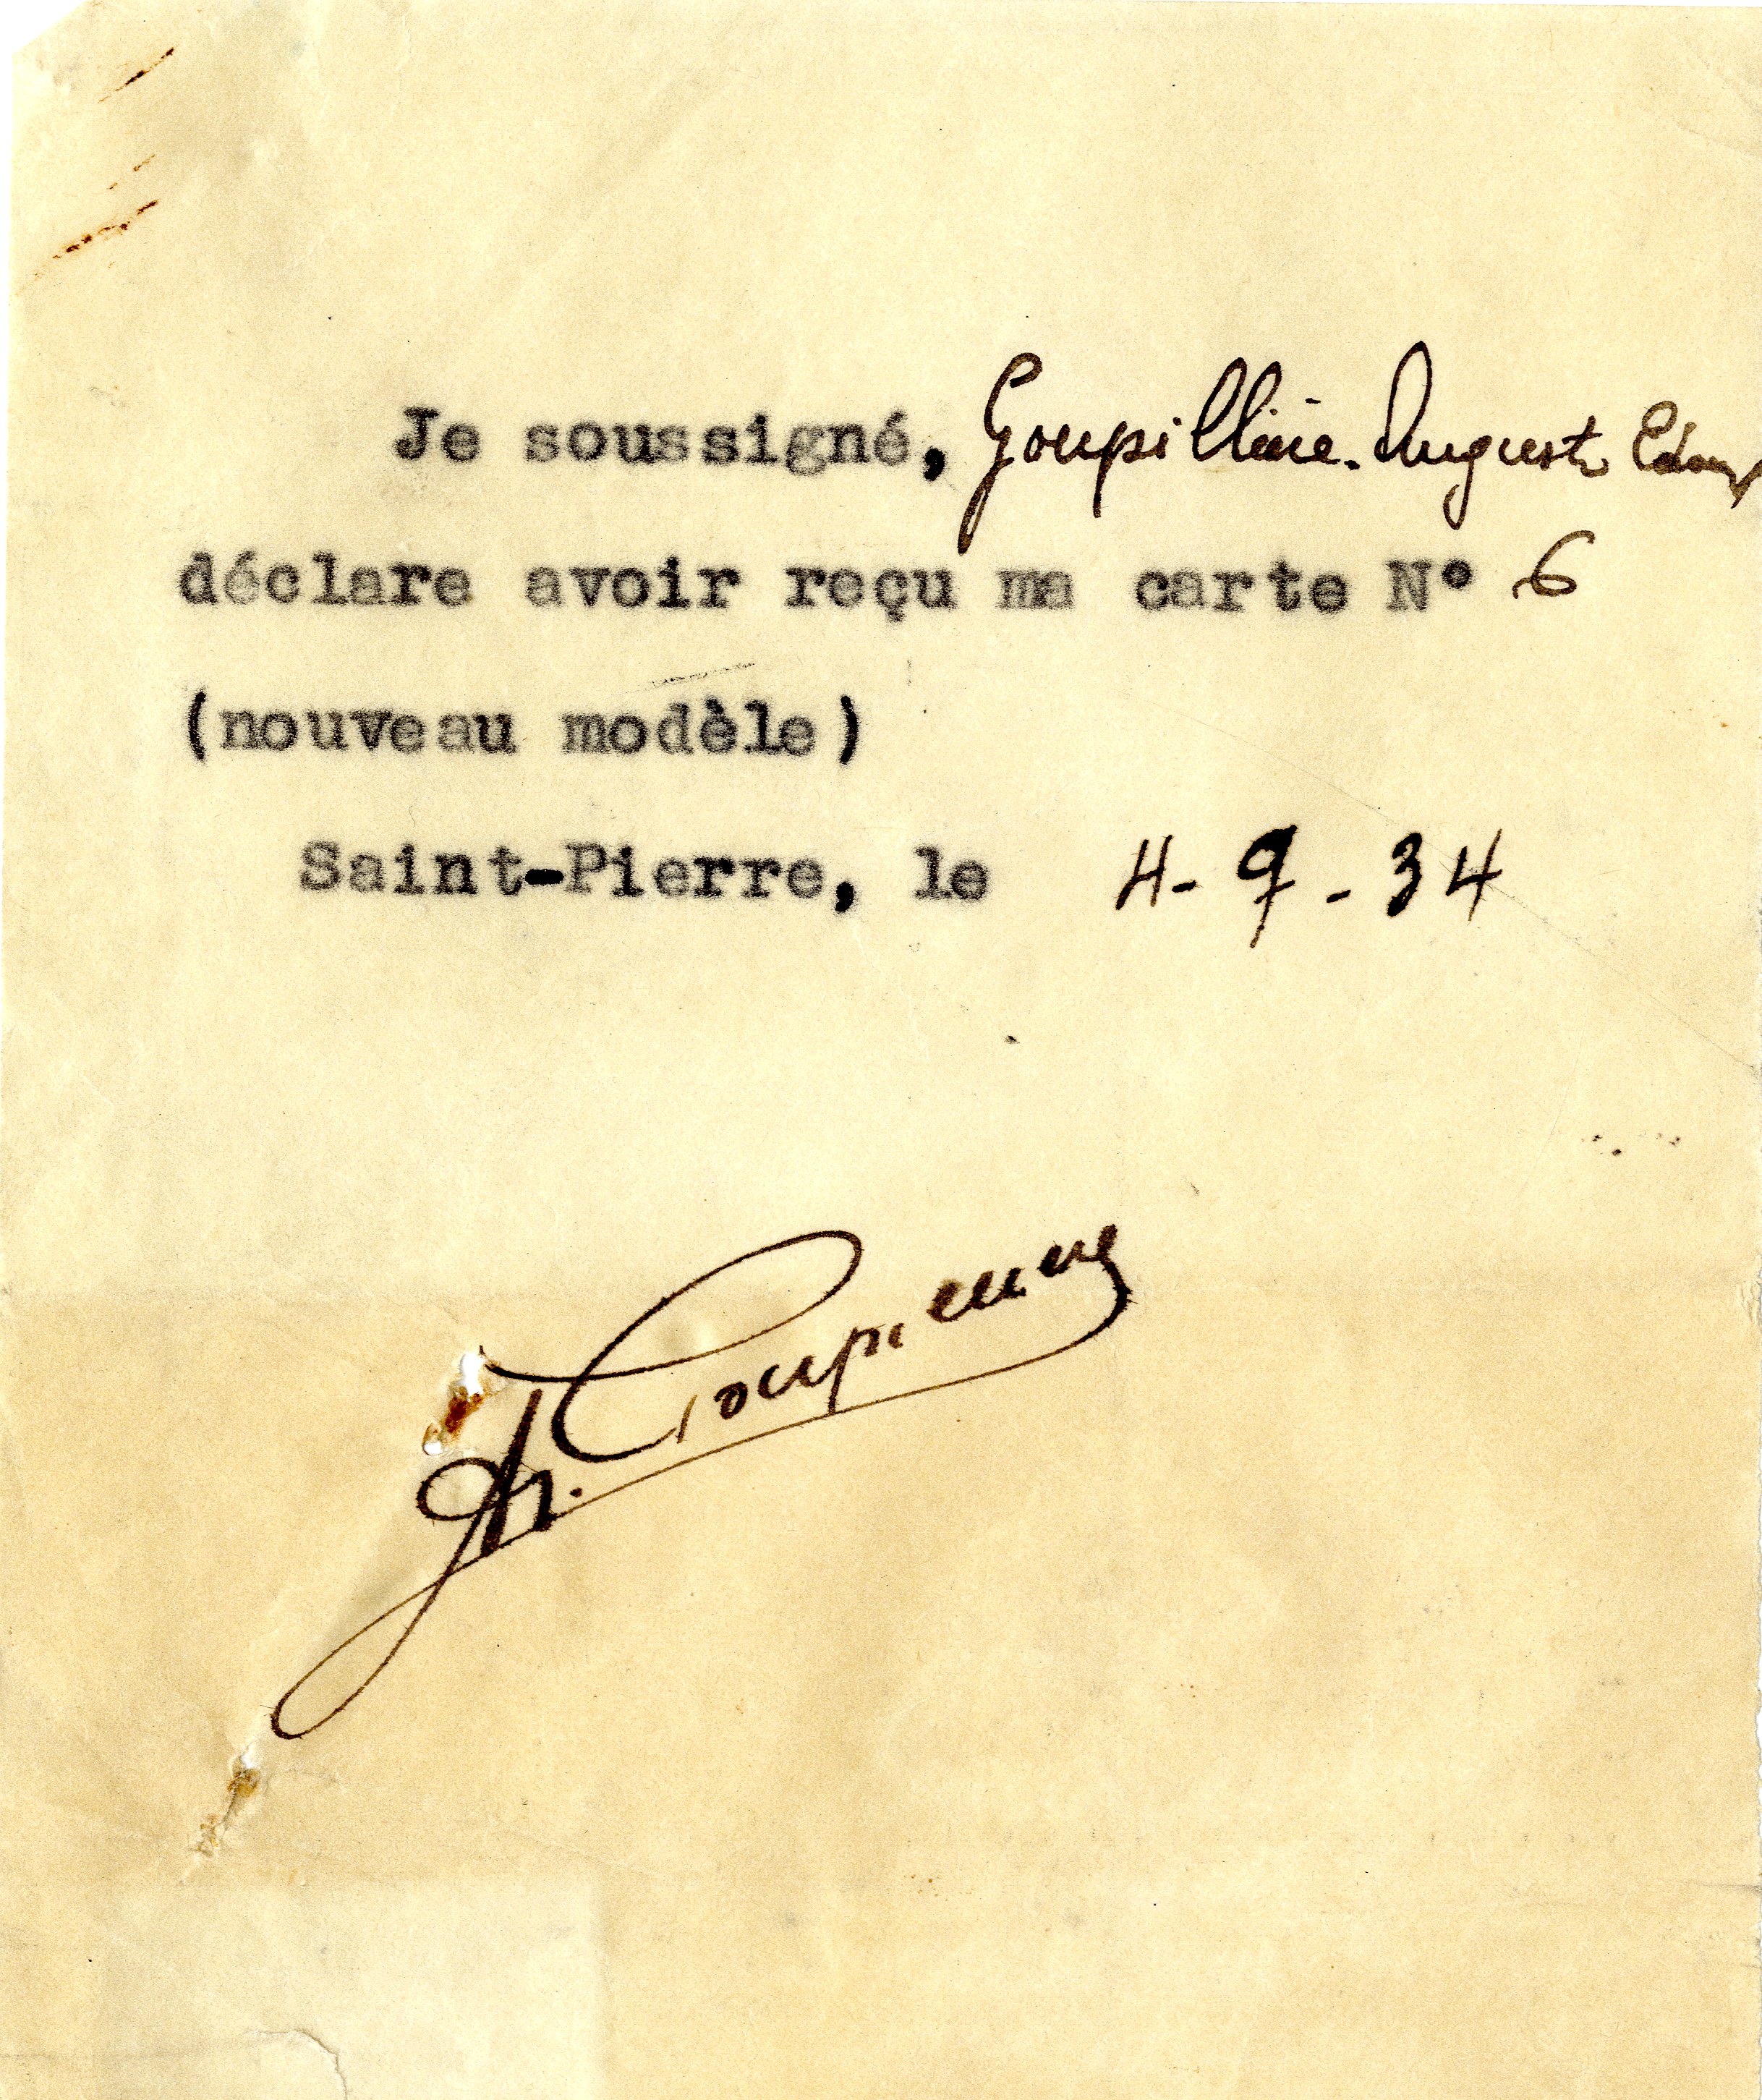 Je soussigné, Goupillière. Auguste
déclare avoir reçu ma carte N° 6
(nouveau modèle)
Saint-Pierre, le 4-9-34